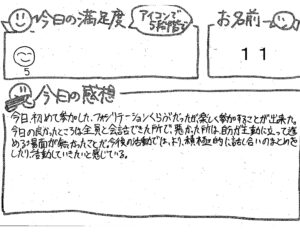 今日の満足度
アイコンで
5段階で
お名前
5
11
今日の感想
今日初めて参加した、ファシリテーションくらぶだったが楽しく参加することが出来た。
今日の良かったところは全員と会話できた所で、悪かった所は、自分が主動に立って進
める場面が無かったことだ。今後の活動では、より、積極的に話し合いのまとめを
したり活動していきたいと感じている。